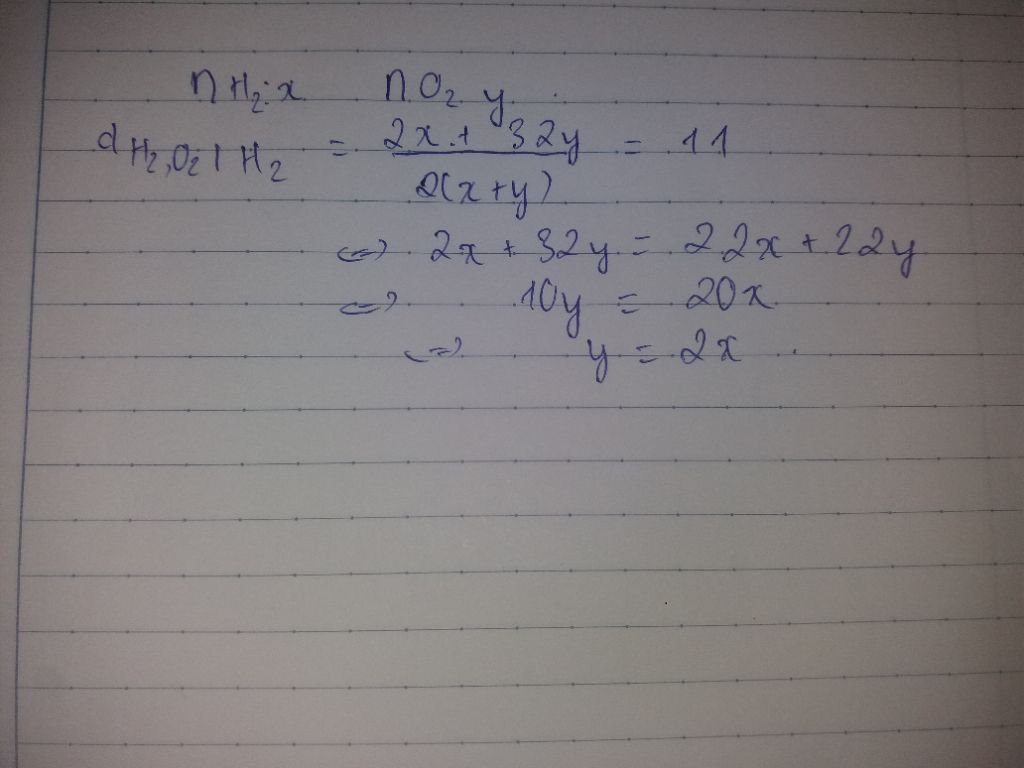 nH₂: x nO₂ y
d H₂,O₂ / H₂ = (2x + 32y) / (2(x+y)) = 11
<=> 2x + 32y = 22x + 22y
<=> 10y = 20x
<=> y = 2x